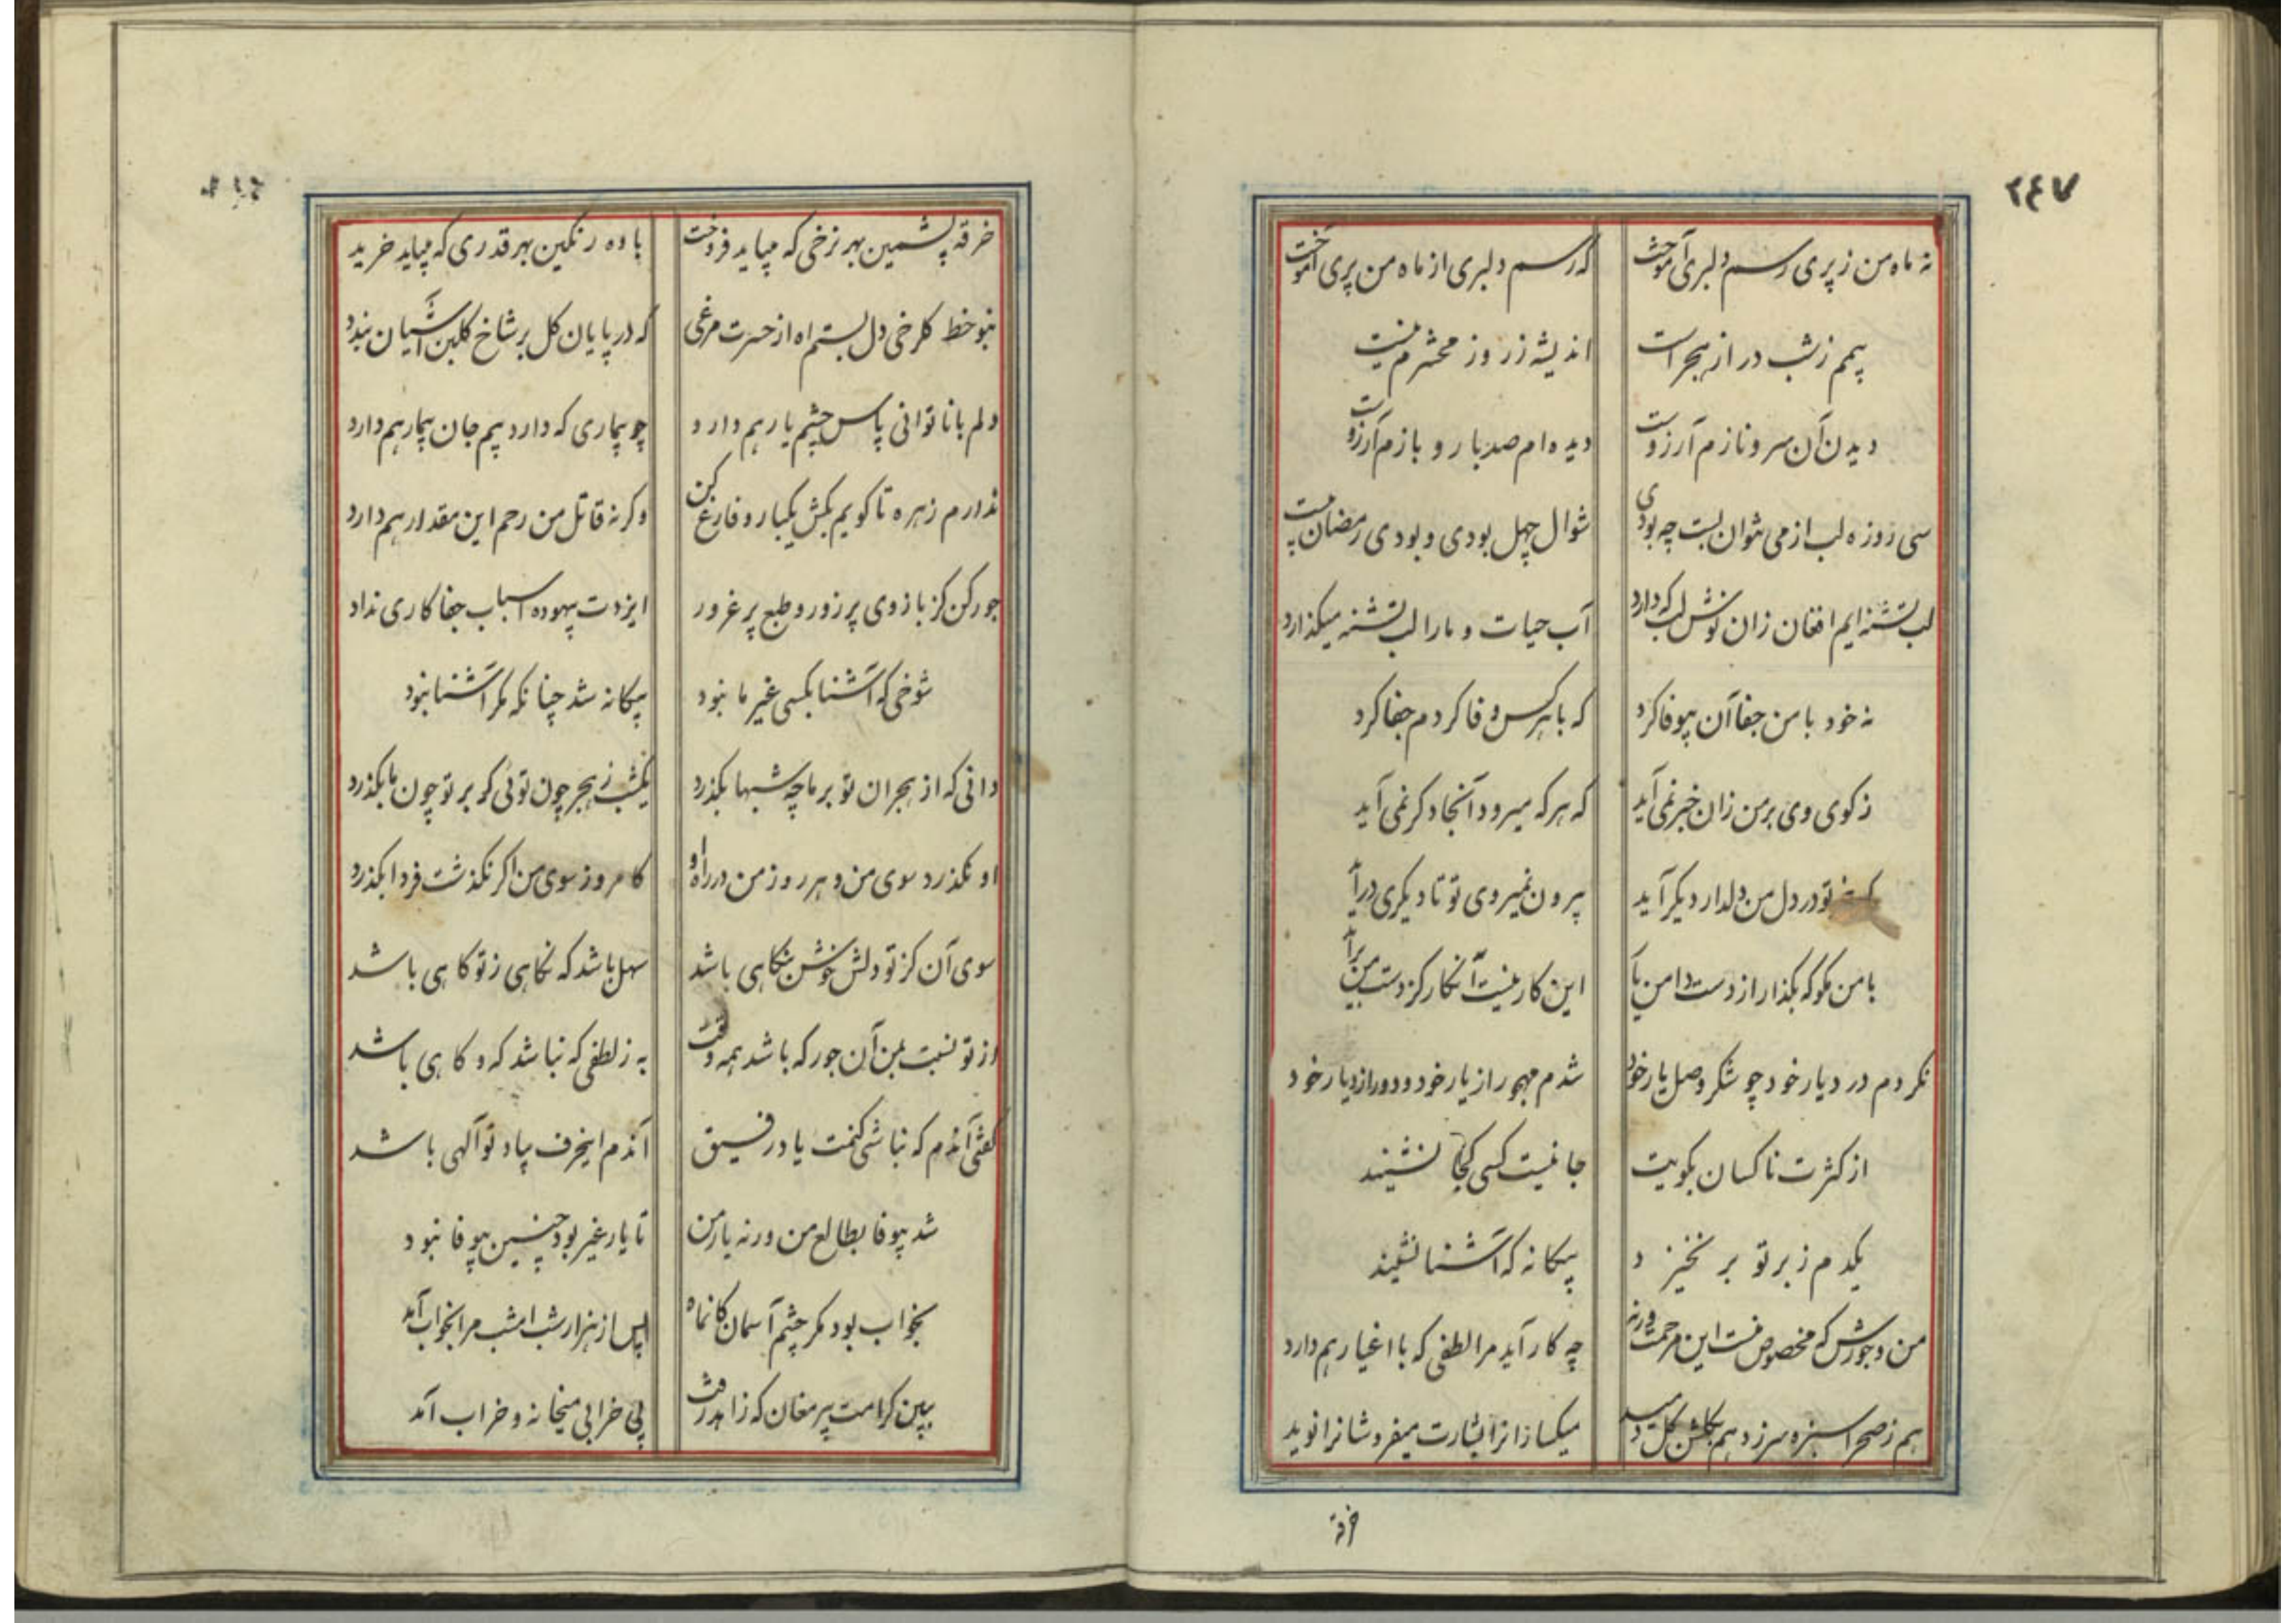 ۲۴۷
نه ماه من ز پری رسم دلبری آموخت
که رسم دلبری از ماه من پری آموخت
بیم ز شب دراز هجر است
اندیشه ز روز محشرم نیست
دیدن آن سرو نازم آرزوست
دیده ام صد بار و بازم آرزوست
سی روزه لب از می نتوان بست چه بودی
شوال چهل بودی و بودی رمضان بیست
لب تشنه ایم افغان زان نوش لب که دارد
آب حیات و ما را لب تشنه میکذارد
نه خود با من جفا آن بیوفا کرد
که با هر کس وفا کردم جفا کرد
ز کوی وی بر من زان خبر نمی آید
که هر که میرود آنجا دکر نمی آید
تو در دل من دلدار دیکر آید
بیرون نمیروی تو تا دیکری درآید
با من مکو که بکذار از دست دامن یار
این کار نیست آن کار کز دست من برآید
نکردم در دیار خود چو شکر وصل یار خود
شدم مهجور از یار خود و دور از دیار خود
از کثرت ناکسان بکویت
جا نیست کسی کجا نشیند
یکدم ز بر تو بر نخیزد
بیکانه که آشنا نشیند
من و جورش که مخصوص منست این مرحمت ورنه
چه کار آید مرا لطفی که با اغیار هم دارد
هم ز صحرا سبزه سر زد هم بکلشن کل دمید
میکسارانرا بشارت میفروشانرا نوید
خرقه
خرقه پشمین بهر نرخی که میباید فروخت
باده رنکین بهر قدری که میباید خرید
بنو خط کلرخی دل بستم اه از حسرت مرغی
که در پایان کل بر شاخ کلبن آشیان بندد
دلم با ناتوانی پاس چشم یار هم دارد
چو بیماری که دارد بیم جان بیمار هم دارد
ندارم زهره تا کویم بکش یکبار و فارغ کن
وکرنه قاتل من رحم این مقدار هم دارد
جور کن کز بازوی پر زور و طبع پر غرور
ایزدت بیهوده اسباب جفا کاری نداد
شوخی که آشنا بکسی غیر ما نبود
بیکانه شد چنانکه مکر آشنا نبود
دانی که از هجران تو بر ما چه شبها بکذرد
یکشب ز هجر چون توئی کر بر تو چون ما بکذرد
او نکذرد سوی من و هر روز من در راه او
کامروز سوی من اکر نکذشت فردا بکذرد
سوی آن کز تو دلش خوش بنکاهی باشد
سهل باشد که نکاهی ز تو کاهی باشد
از تو نسبت بمن آن جور که باشد همه وقت
به ز لطفی که نباشد که و کاهی باشد
کفتی آندم که نباشی کنمت یاد رفیق
آندم اینحرف بیاد تو آلهی باشد
شد بیوفا بطالع من ورنه یار من
تا یار غیر بود چنین بیوفا نبود
بخواب بود مکر چشم آسمان کانماه
پس از هزار شب امشب مرا بخواب آمد
ببین کرامت پیر مغان که زاهد رفت
پی خرابی میخانه و خراب آمد